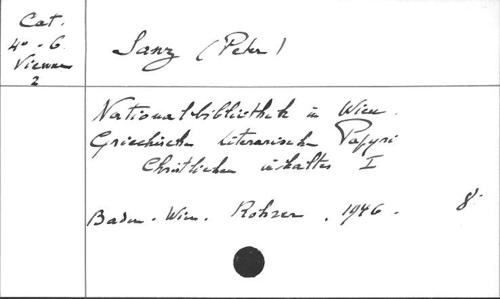 Cat.
4° - 6.
Vienna
2
Sanz (Peter)
Nationalbibliothek in Wien.
Griechische Literarische Papyri
Christlichen inhaltes I
Baden. Wien. Rohrer. 1946. 8°